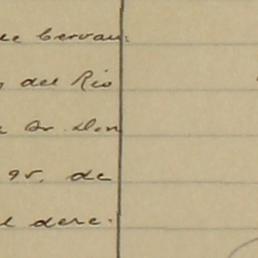 de Cervan-
del Rio
Sr. Don
gr. de
l dere-